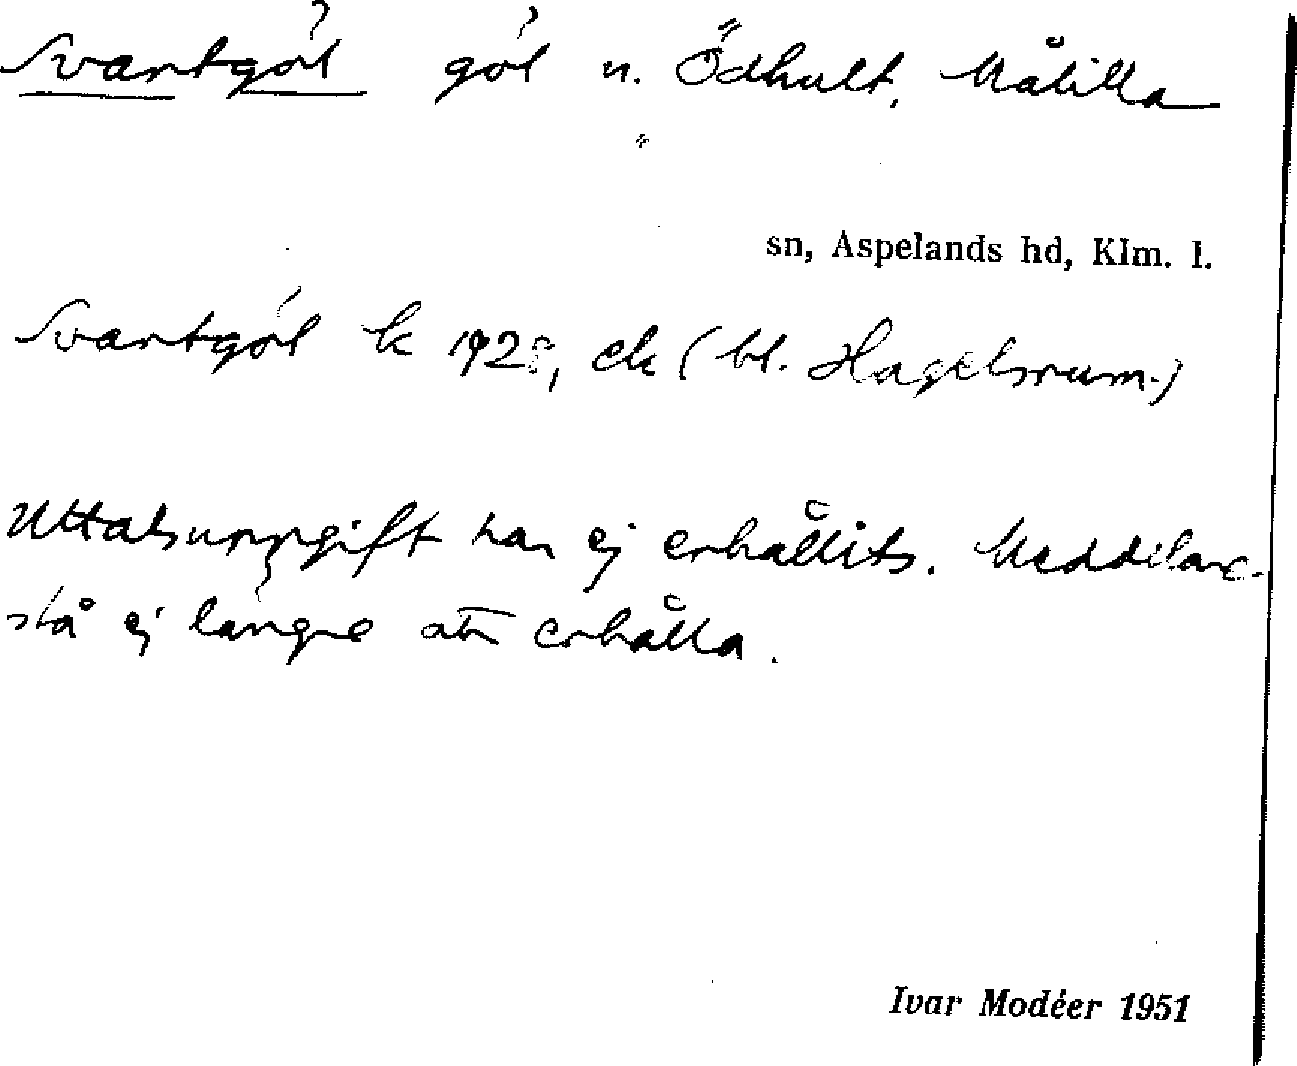 Svartgöl göl n. Ödhult, Målilla
sn, Aspelands hd, Klm. l.
Svartgöl k 1928, ek (bl. Hagelsrum)
Uttalsuppgift har ej erhållits. Meddelare
stå ej längre att erhålla.
Ivar Modéer 1951